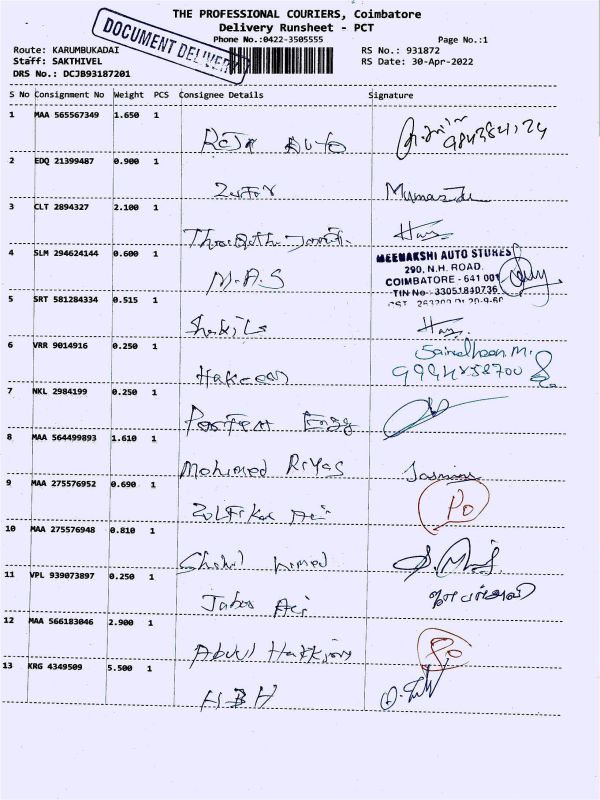 THE PROFESSIONAL COURIERS, Coimbatore
Delivery Runsheet - PCT
DOCUMENT DELIVERY
Phone No.:0422-3505555
Page No.:1
Route: KARUMBUKADAI
RS No.: 931872
Staff: SAKTHIVEL
RS Date: 30-Apr-2022
DRS No.: DCJB93187201
S No Consignment No Weight PCS Consignee Details Signature
1 MAA 565567349 1.650 1
Raja Auto
2 EDQ 21399487 0.900 1
3 CLT 2894327 2.100 1
4 SLM 294624144 0.600 1
M.A.S
MEENAKSHI AUTO STORES
290, N.H. ROAD.
COIMBATORE - 641 001
TIN No- 33051840736
5 SRT 581284334 0.515 1
Shakila
6 VRR 9014916 0.250 1
Hakeem
7 NKL 2984199 0.250 1
Perfect Engg
8 MAA 564499893 1.610 1
Mohimed Riyas
9 MAA 275576952 0.690 1
Zulfikar Ali
Po
10 MAA 275576948 0.810 1
11 VPL 939073897 0.250 1
12 MAA 566183046 2.900 1
Abdul Hakkim
Po
13 KRG 4349509 5.500 1
HBH